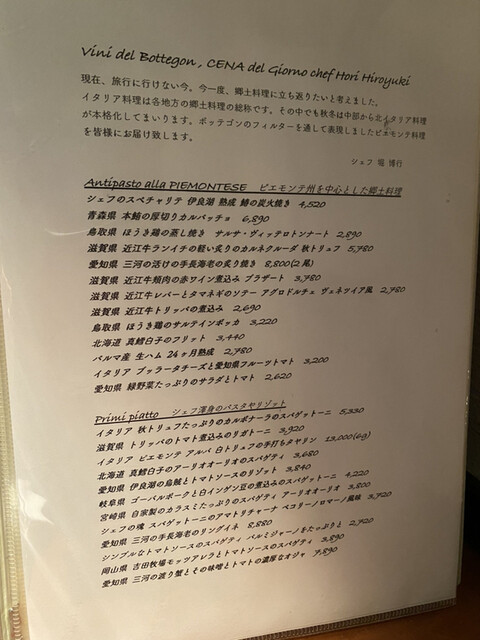 Vini del Bottegon, CENA del Giorno chef Hori Hiroyuki
現在、旅行に行けない今。今一度、郷土料理に立ち返りたいと考えました。
イタリア料理は各地方の郷土料理の総称です。その中でも秋冬は中部から北イタリア料理
が本格化してまいります。ボッテゴンのフィルターを通して表現しましたピエモンテ料理
を皆様にお届け致します。
シェフ 堀 博行
Antipasto alla PIEMONTESE ピエモンテ州を中心とした郷土料理
シェフのスペチャリテ 伊良湖 熟成 鰆の炭火焼き 4,520
青森県 本鮪の厚切りカルパッチョ 6,890
鳥取県 ほうき鶏の蒸し焼き サルサ・ヴィッテロトンナート 2,890
滋賀県 近江牛ランイチの軽い炙りのカルネクルーダ 秋トリュフ 5,780
愛知県 三河の活けの手長海老の炙り焼き 8,800(2尾)
滋賀県 近江牛頬肉の赤ワイン煮込み ブラザート 3,780
滋賀県 近江牛レバーとタマネギのソテー アグロドルチェ ヴェネツイア風 2,780
滋賀県 近江牛トリッパの煮込み 2,690
鳥取県 ほうき鶏のサルテインボッカ 3,220
北海道 真鱈白子のフリット 3,440
パルマ産 生ハム 24ヶ月熟成 2,780
イタリア ブッラータチーズと愛知県フルーツトマト 3,200
愛知県 緑野菜たっぷりのサラダとトマト 2,620
Primi piatto シェフ渾身のパスタやリゾット
イタリア 秋トリュフたっぷりのカルボナーラのスパゲットーニ 5,330
滋賀県 トリッパのトマト煮込みのリガトーニ 3,920
イタリア ピエモンテ アルバ 白トリュフの手打ちタヤリン 13,000(6g)
北海道 真鱈白子のアーリオオーリオのスパゲティ 3,680
愛知県 伊良湖の烏賊とトマトソースのリゾット 3,840
岐阜県 ゴーバルポークと白インゲン豆の煮込みのスパゲットーニ 4,220
宮崎県 自家製のカラスミたっぷりのスパゲティ アーリオオーリオ 3,800
シェフの魂 スパゲットーニのアマトリチャーナ ペコリーノロマーノ風味 3,720
愛知県 三河の手長海老のリングイネ 8,880
シンプルなトマトソースのスパゲティ パルミジャーノをたっぷりと 2,720
岡山県 吉田牧場モッツアレラとトマトソースのスパゲティ 3,890
愛知県 三河の渡り蟹とその味噌とトマトの濃厚なオジャ 7,890